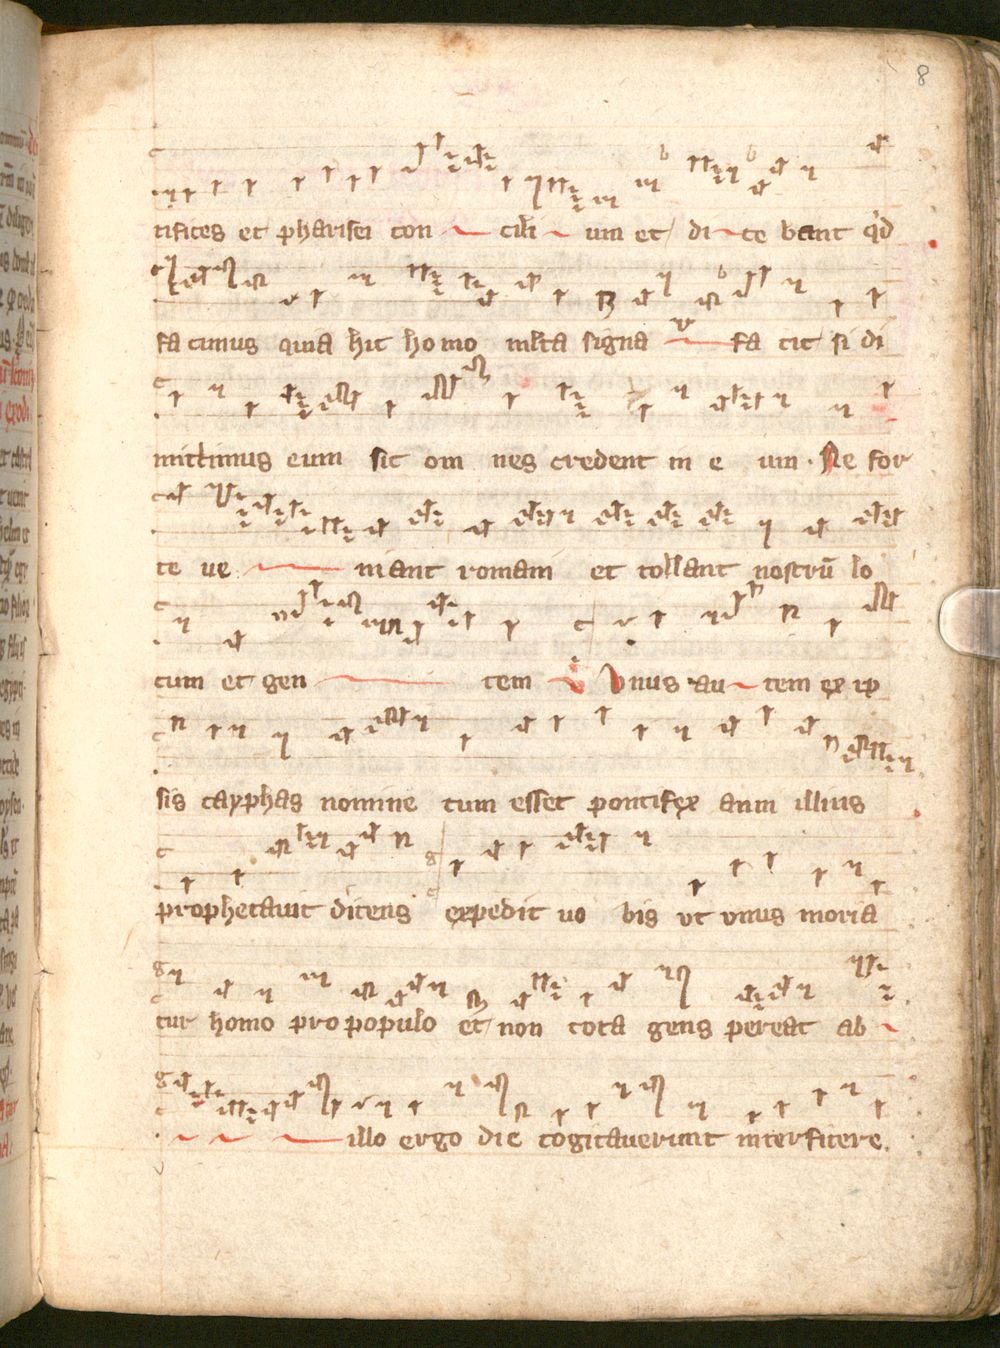 8
tifices et pharisei con cili um et di ce bant qd
fa cimus quia hic homo mlta signa fa cit si di
mittimus eum sic om nes credent in e um . Ne for
te ve niant romani et tollant nostrū lo
cum et gen tem V Vnus au tem ex ip
sis cayphas nomine cum esset pontifex anni illius
prophetavit dicens expedit vo bis vt vnus moria
tur homo pro populo et non tota gens pereat ab
illo ergo die cogitaverunt interficere.